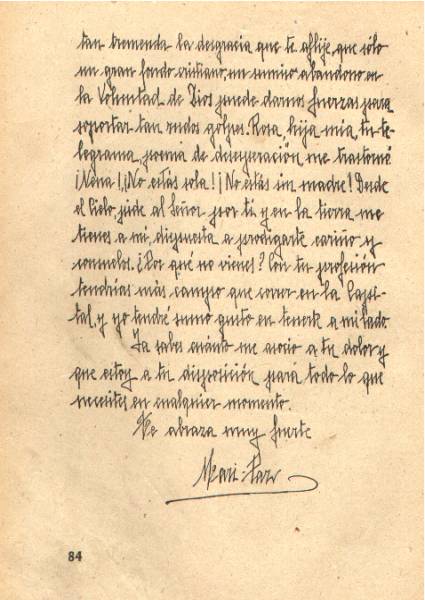 tan tremenda la desgracia que te aflije, que sólo
un gran fondo cristiano, un sumiso abandono en
la Voluntad de Dios puede darnos fuerzas para
soportar tan rudos golpes. Rosa, hija mía, tu te-
legrama, poema de desesperación, me trastornó
¡Nena! ¡No estás sola! ¡No estás sin madre! Desde
el Cielo, pide al Señor por ti y en la tierra me
tienes a mí, dispuesta a prodigarte cariño y
consuelos. ¿Por qué no vienes? Con tu profesión
tendrías más campo que correr en la Capi-
tal, y yo tendré sumo gusto en tenerte a mi lado.
Ya sabes cuánto me asocio a tu dolor y
que estoy a tu disposición para todo lo que
necesites en cualquier momento.
Te abraza muy fuerte
Mari-Paz
84